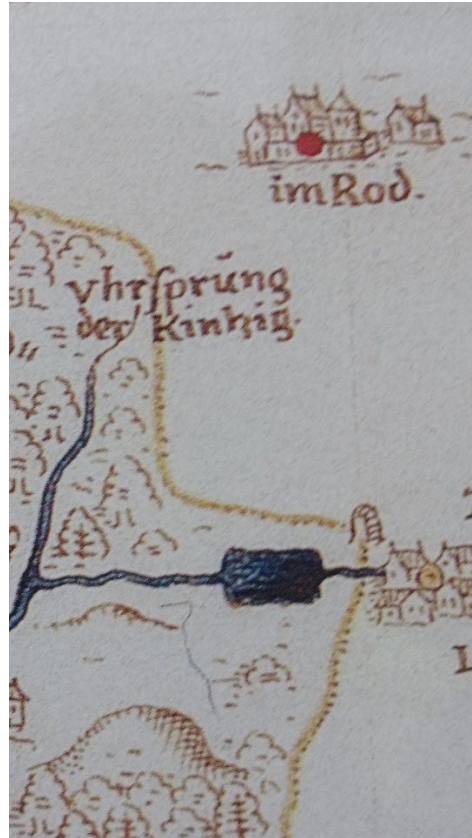 im Rod.
vhrsprũng
der Kinhig.